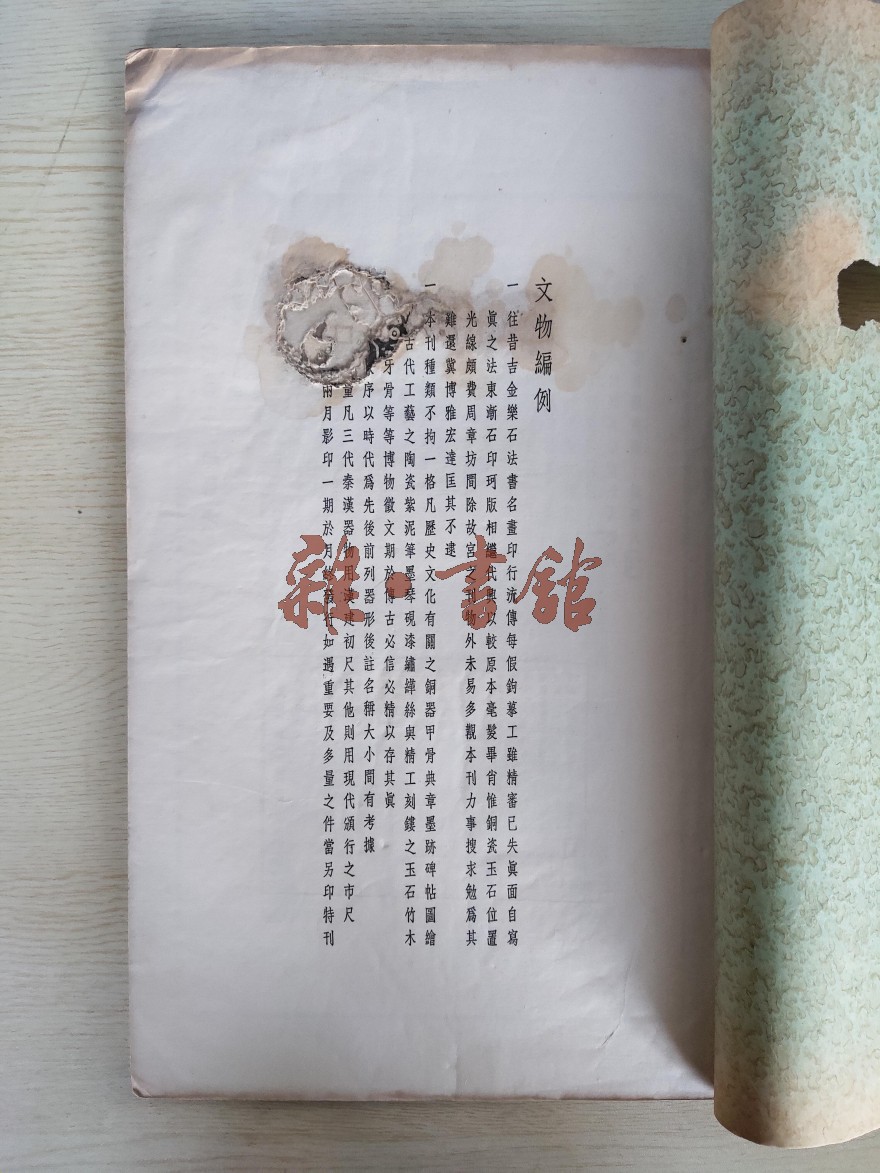 文物編例
一往昔吉金樂石法書名畫印行流傳每假鉤摹工雖精審已失眞面自寫
眞之法東漸石印珂版相繼代興以較原本毫髮畢肖惟銅瓷玉石位置
光線頗費周章坊間除故宮之刊物外未易多觀本刊力事搜求勉爲其
難還冀博雅宏達匡其不逮
一本刊種類不拘一格凡歷史文化有關之銅器甲骨典章墨跡碑帖圖繪
古代工藝之陶瓷紫泥筆墨琴硯漆繡緙絲與精工刻鏤之玉石竹木
牙骨等等博物徵文期於傳古必信必精以存其眞
序以時代爲先後前列器形後註名稱大小間有考據
量凡三代秦漢器物用漢建初尺其他則用現代頒行之市尺
兩月影印一期於月終發行如遇重要及多量之件當另印特刊
雜·書館